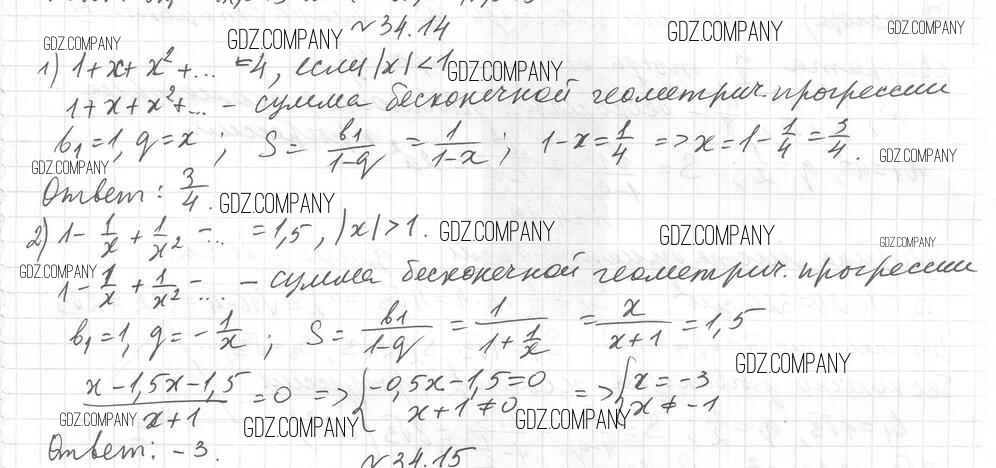 №34.14
GDZ.COMPANY GDZ.COMPANY GDZ.COMPANY GDZ.COMPANY
1) 1+x+x²+... =4, если |x|<1 GDZ.COMPANY
1+x+x²+... - сумма бесконечной геометрич. прогрессии
b₁=1, q=x ; S= b₁/(1-q) = 1/(1-x) ; 1-x=1/4 => x=1-1/4=3/4. GDZ.COMPANY
GDZ.COMPANY
Ответ: 3/4. GDZ.COMPANY
2) 1-1/x+1/x²-... =1,5, |x|>1. GDZ.COMPANY GDZ.COMPANY GDZ.COMPANY
GDZ.COMPANY
1-1/x+1/x²-... - сумма бесконечной геометрич. прогрессии
b₁=1, q=-1/x ; S= b₁/(1-q) = 1/(1+1/x) = x/(x+1) =1,5
GDZ.COMPANY
(x-1,5x-1,5)/(x+1) =0 => { -0,5x-1,5=0 x+1≠0 => { x=-3 x≠-1
GDZ.COMPANY GDZ.COMPANY GDZ.COMPANY
Ответ: -3.
№34.15